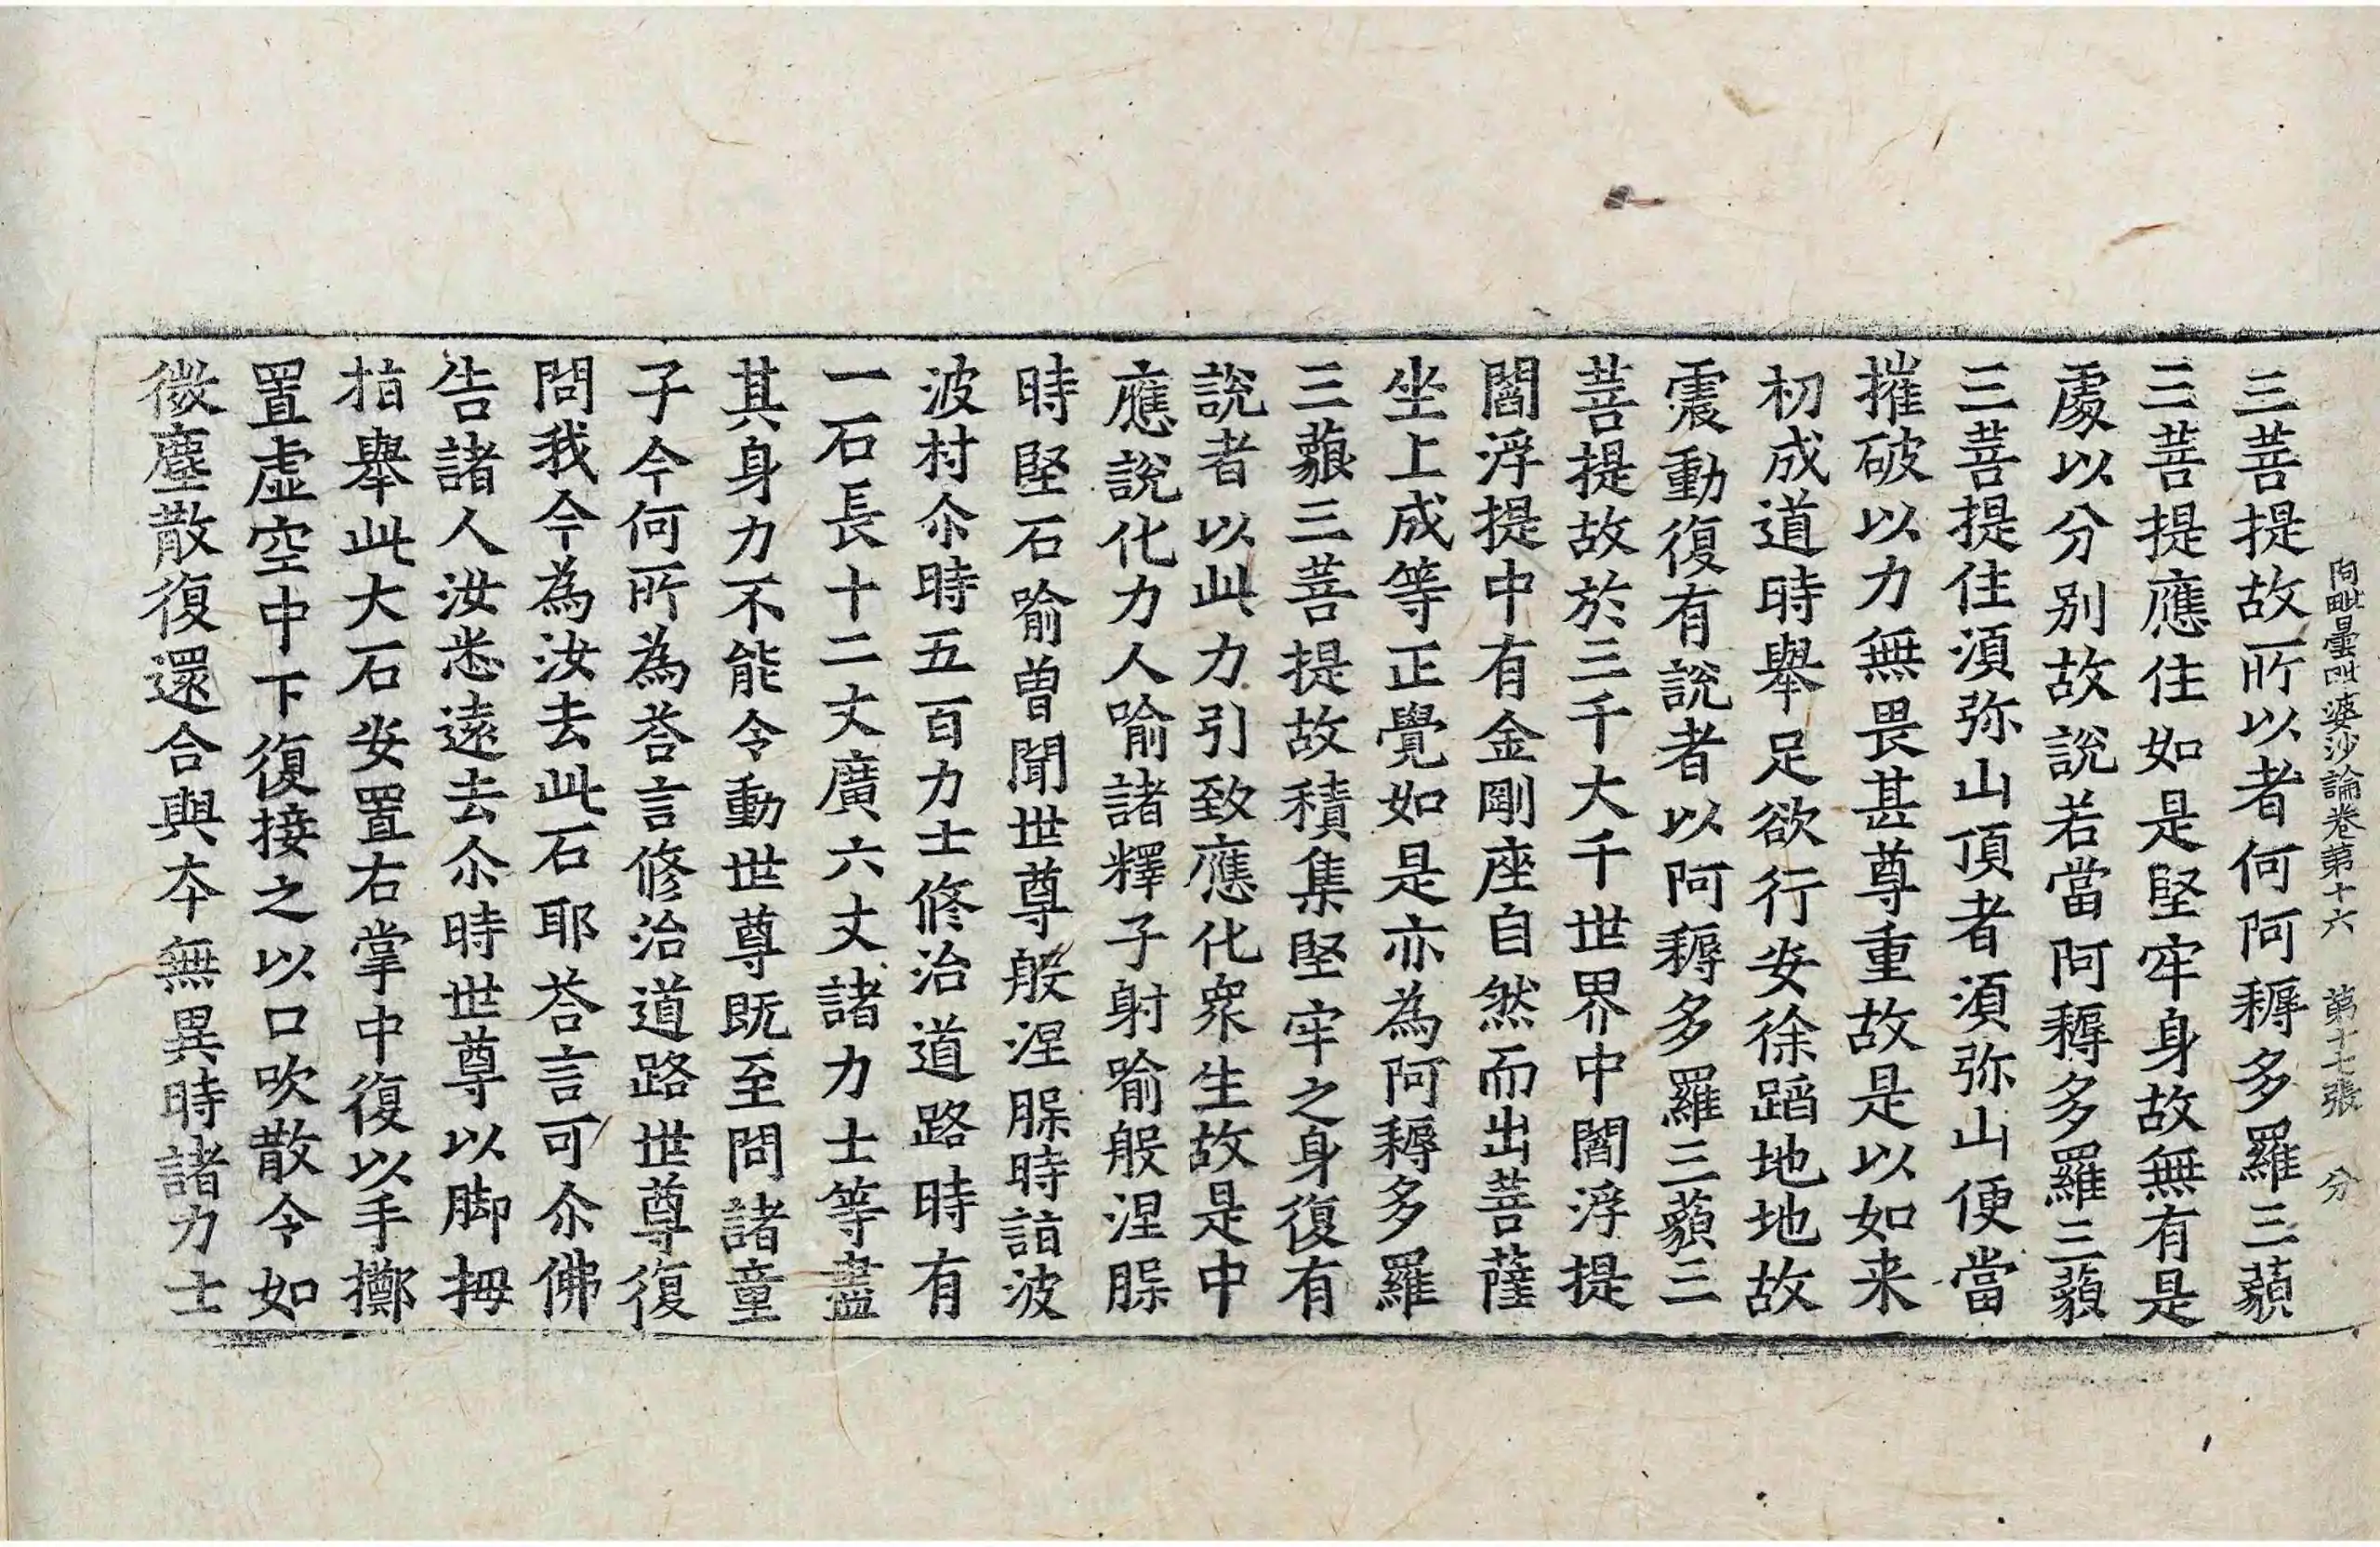 阿毗曇毗婆沙論卷第十六 第十七張 分
三菩提故所以者何阿耨多羅三藐
三菩提應住如是堅牢身故無有是
處以分别故說若當阿耨多羅三藐
三菩提住湏弥山頂者湏弥山便當
摧破以力無畏甚尊重故是以如来
初成道時舉足欲行安徐蹈地地故
震動復有說者以阿耨多羅三藐三
菩提故於三千大千世界中閻浮提
閻浮提中有金剛座自然而出菩薩
坐上成等正覺如是亦為阿耨多羅
三藐三菩提故積集堅牢之身復有
說者以此力引致應化衆生故是中
應說化力人喻諸釋子射喻般涅槃
時堅石喻曾聞世尊般涅槃時詣波
波村尒時五百力士修治道路時有
一石長十二丈廣六丈諸力士等盡
其身力不能令動世尊既至問諸童
子今何所為荅言修治道路世尊復
問我今為汝去此石耶荅言可尒佛
告諸人汝悉遠去尒時世尊以脚拇
指舉此大石安置右掌中復以手擲
置虛空中下復接之以口吹散令如
微塵散復還合與本無異時諸力士